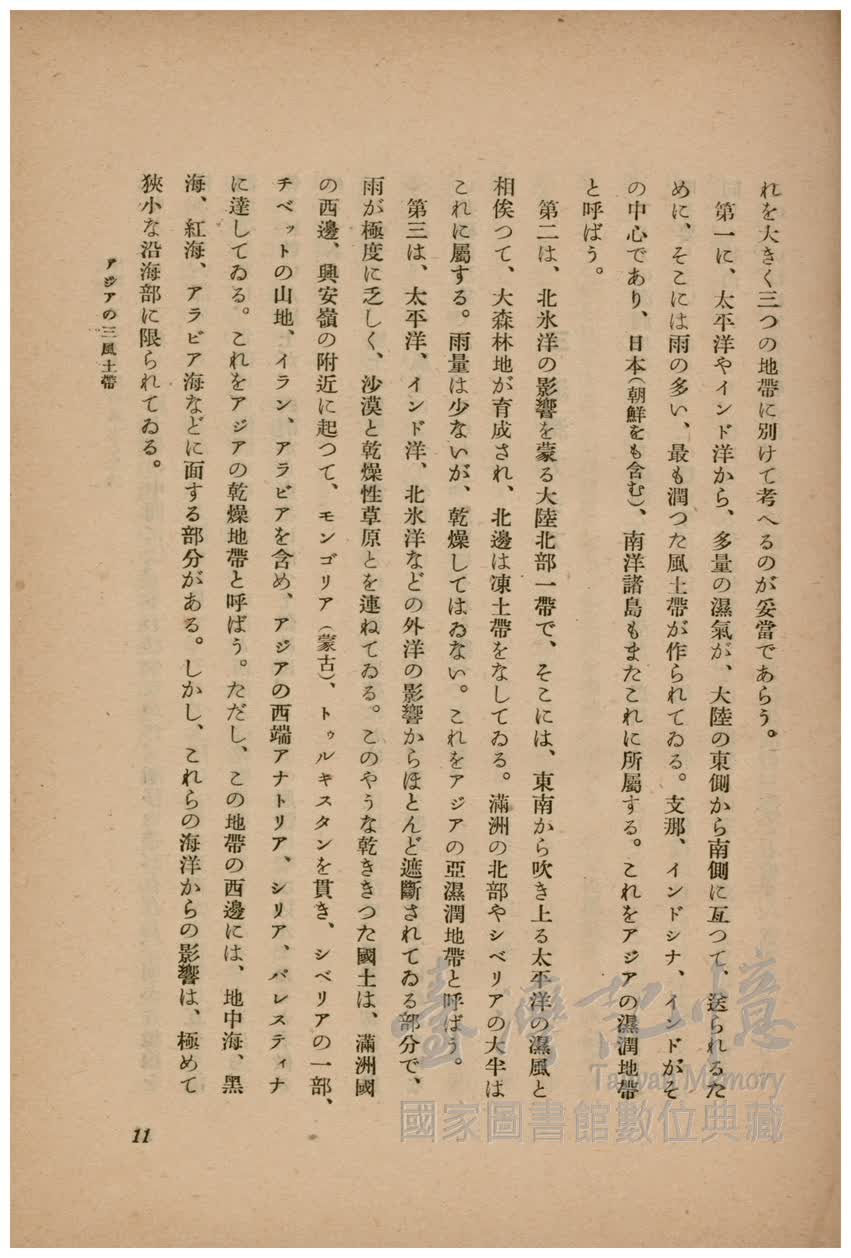 れを大きく三つの地帶に別けて考へるのが妥當であらう。
第一に、太平洋やインド洋から、多量の濕氣が、大陸の東側から南側に亙つて、送られるた
めに、そこには雨の多い、最も潤つた風土帶が作られてゐる。支那、インドシナ、インドがそ
の中心であり、日本(朝鮮をも含む)、南洋諸島もまたこれに所屬する。これをアジアの濕潤地帶
と呼ばう。
第二は、北氷洋の影響を蒙る大陸北部一帶で、そこには、東南から吹き上る太平洋の濕風と
相俟つて、大森林地が育成され、北邊は凍土帶をなしてゐる。滿洲の北部やシベリアの大半は
これに屬する。雨量は少ないが、乾燥してはゐない。これをアジアの亞濕潤地帶と呼ばう。
第三は、太平洋、インド洋、北氷洋などの外洋の影響からほとんど遮斷されてゐる部分で、
雨が極度に乏しく、沙漠と乾燥性草原とを連ねてゐる。このやうな乾ききつた國土は、滿洲國
の西邊、興安嶺の附近に起つて、モンゴリア(蒙古)、トゥルキスタンを貫き、シベリアの一部、
チベットの山地、イラン、アラビアを含め、アジアの西端アナトリア、シリア、パレスティナ
に達してゐる。これをアジアの乾燥地帶と呼ばう。ただし、この地帶の西邊には、地中海、黑
海、紅海、アラビア海などに面する部分がある。しかし、これらの海洋からの影響は、極めて
狹小な沿海部に限られてゐる。
アジアの三風土帶
11
臺灣記憶
Taiwan Memory
國家圖書館數位典藏